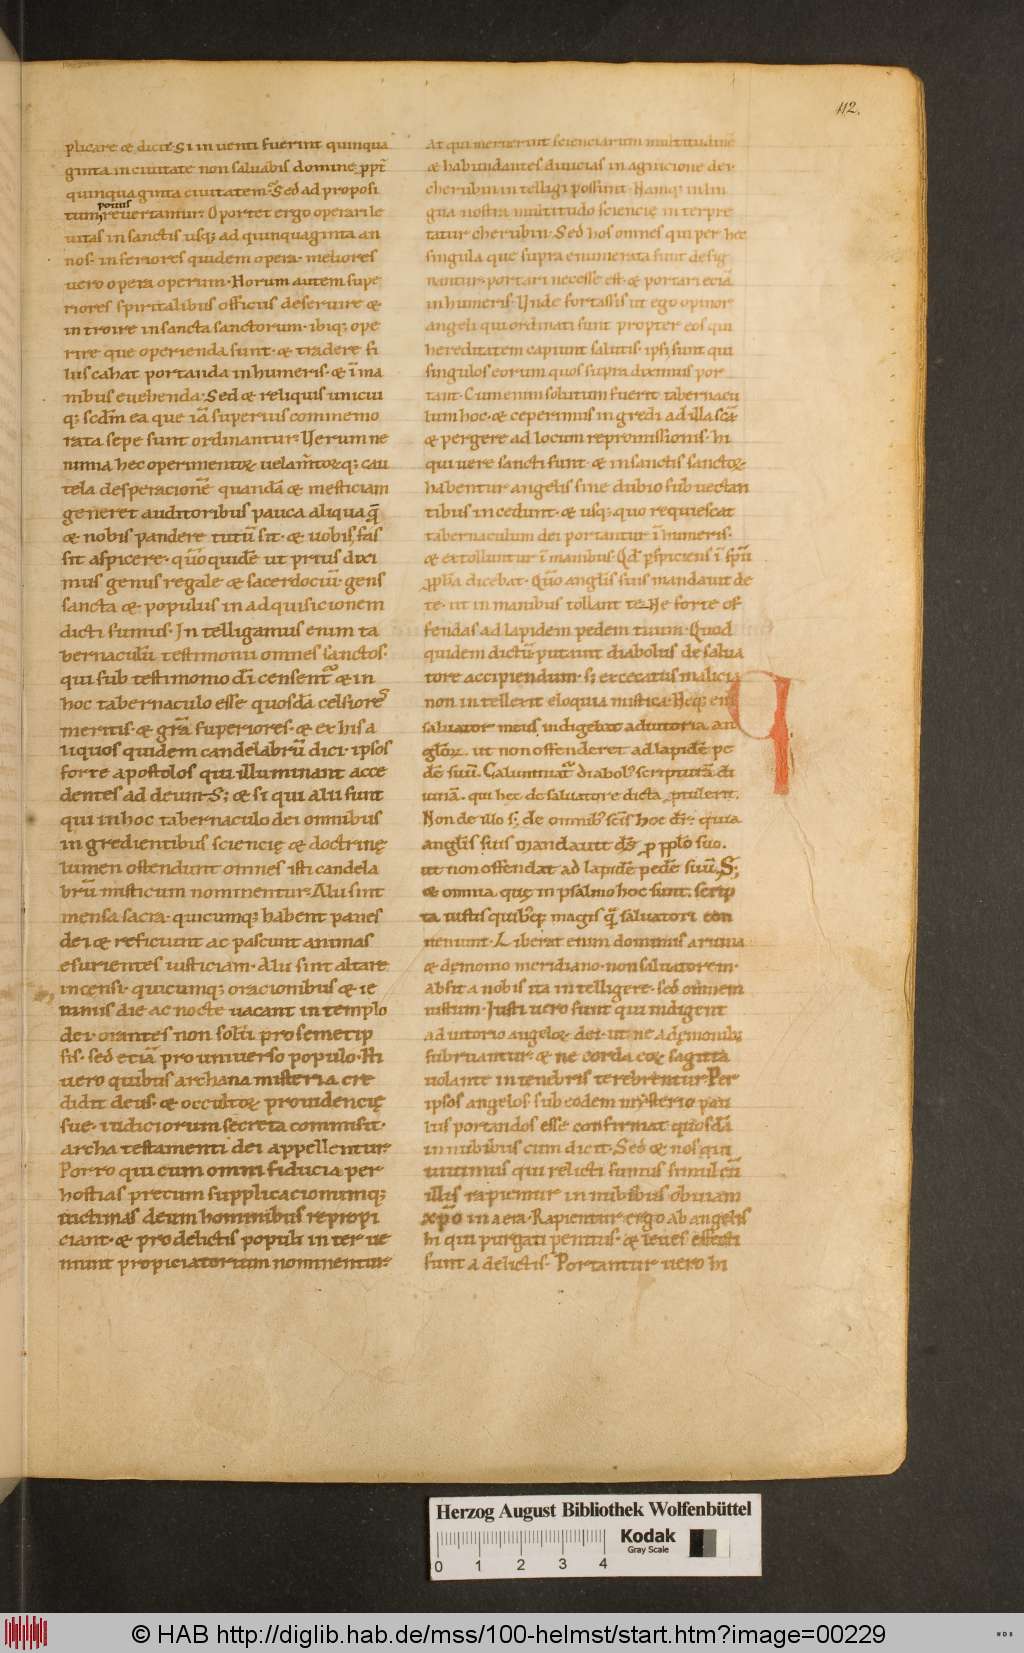 112.
plicare & dicit. Si inuenti fuerint quinqua
ginta in ciuitate non saluabis domine ppt̄
quinquaginta ciuitatem. Sed ad proposi
tum potius reuertamur. Oportet ergo operari le
uitas in sanctis usq; ad quinquaginta an
nos. inferiores quidem opera. meliores
uero opera operum. Horum autem supe
riores spiritalibus officiis deseruire &
introire in sancta sanctorum. ibiq; ope
rire que operienda sunt. & tradere fi
liis cahat portanda in humeris. & ī ma
nibus euehenda. Sed & reliquis unicui
q; scd̄m ea que iā superius commemo
rata sepe sunt ordinantur. Verum ne
nimia hec operimentoꝝ uelam̄toꝝq; cau
tela desperacionē quandā & mesticiam
generet auditoribus pauca aliqua q̄
& nobis pandere tutū sit. & uobis fas
sit aspicere. quō quidē ut prius dixi
mus genus regale & sacerdociū. gens
sancta & populus in adquisicionem
dicti sumus. Intelligamus enim ta
bernaculū testimonii omnes sanctos.
qui sub testimonio dī censent̄ & in
hoc tabernaculo esse quosdā celsiores
meritis. & grā superiores. & ex his a
liquos quidem candelabrū dici. ipsos
forte apostolos qui illuminant acce
dentes ad deum. S; & si qui alii sunt
qui in hoc tabernaculo dei omnibus
ingredientibus sciencię & doctrinę
lumen ostendunt omnes isti candela
brū misticum nominentur. Alii sint
mensa sacra. quicumq; habent panes
dei & reficiunt ac pascunt animas
esurientes iusticiam. Alii sint altare
incensi. quicumq; oracionibus & ie
iuniis die ac nocte uacant in templo
dei. orantes non solū pro semetip
sis. sed eciā pro uniuerso populo. Hi
uero quibus archana misteria cre
didit deus. & occultoꝝ prouidencię
sue. iudiciorum secreta commisit.
archa testamenti dei appellentur
Porro qui cum omni fiducia per
hostias precum supplicacionumq;
uictimas deum hominibus repropi
ciant. & pro delictis populi interue
niunt propiciatorium nominentur
At qui meruerint scienciarum multitudinē
& habundantes diuicias in agnicione dei.
cherubin intelligi possunt. Namq; in lin
gua nostra multitudo sciencię interpre
tatur cherubin. Sed hos omnes qui per hec
singula que supra enumerata sunt desig
nantur. portari necesse est. & portari eciā
in humeris. Unde fortassis ut ego opinor
angeli qui ordinati sunt propter eos qui
hereditatem capiunt salutis. ipsi sunt qui
singulos eorum quos supra diximus por
tant. Cum enim solutum fuerit tabernacu
lum hoc. & ceperimus ingredi ad illa scā
& pergere ad locum repromissionis. hi
qui uere sancti sunt. & in sanctis sanctoꝝ
habentur angelis sine dubio subuectan
tibus incedunt. & usq; quo requiescat
tabernaculum dei portantur ī humeris.
& extolluntur ī manibus. Qd̄ p̄spiciens ī spū
ꝓphā dicebat. Qm̄ anglīs suis mandauit de
te. ut in manibus tollant te. Ne forte of
fendas ad lapidem pedem tuum. Quod
quidem dictū putauit diabolus de salua
tore accipiendum. s; excecatus malicia
non intellexit eloquia mistica. Neq; eni
saluator meus indigebat adiutoria an
glōꝝ. ut non offenderet ad lapidē pe
dē suū. Calumniat̄ diabolꝰ scripturā di
uinā. qui hec de saluatore dicta ꝓtulerit.
Non de illo s; de omnibꝰ scīs hoc dr̄. quia
anglīs suis mandauit dś ꝓ pplo suo.
ut non offendat ad lapidē pedē suū. S;
& omnia quę in psalmo hoc sunt scrip
ta iustis quibꝰq; magis q̄ saluatori con
ueniunt. Liberat enim dominus a ruina
& demonio meridiano. non saluatorem.
absit a nobis ita intelligere. sed omnem
iustum. Iusti uero sunt qui indigent
adiutorio angeloꝝ dei. ut ne a demonibꝫ
subruantur. & ne corda eoꝝ sagitta
uolante in tenebris terebrentur. Per
ipsos angelos. sub eodem mysterio pau
lus portandos esse confirmat quosdā
in nubibus cum dicit. Sed & nos qui
uiuimus qui relicti sumus simul cū
illis rapiemur in nubibus obuiam
xp̄o in aera. Rapientur ergo ab angelis
hi qui purgati penitus. & leues effecti
sunt a delictis. Portantur uero hi
Herzog August Bibliothek Wolfenbüttel
Kodak
Gray Scale
0 1 2 3 4
© HAB http://diglib.hab.de/mss/100-helmst/start.htm?image=00229